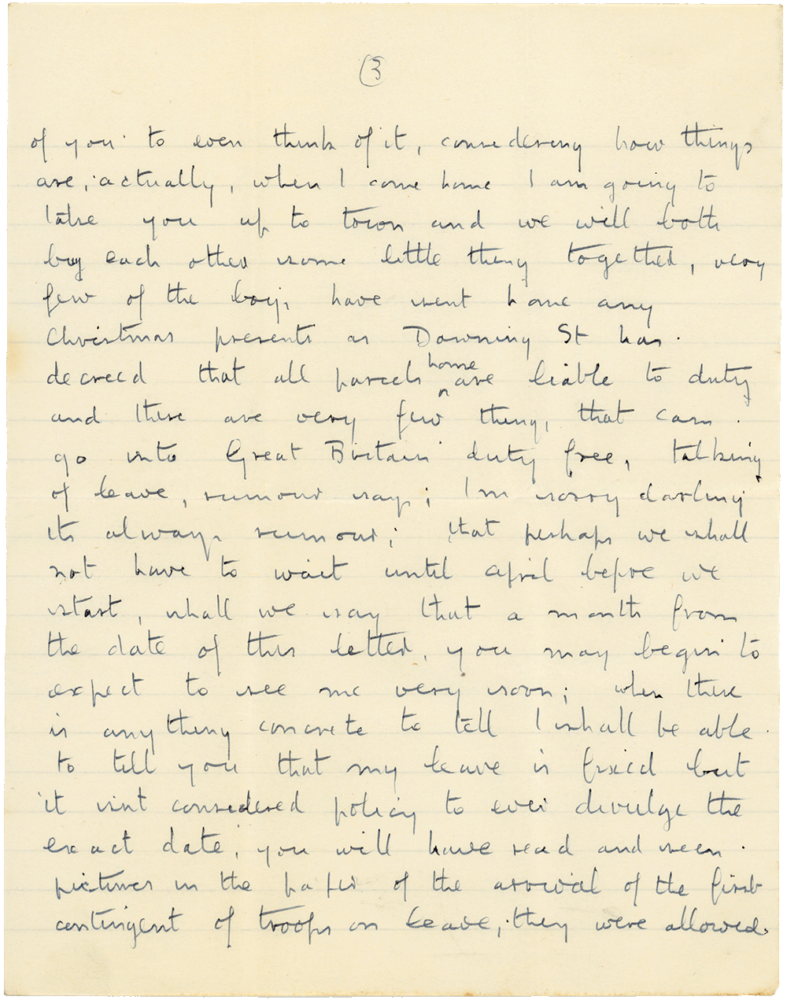 (3
of you to even think of it, considering how things
are, actually, when I come home I am going to
take you up to town and we will both
buy each other some little thing together, very
few of the boys have sent home any
Christmas presents as Downing St has
decreed that all parcels home are liable to duty
and there are very few things that can
go into Great Britain duty free, talking
of leave, rumour says; I'm sorry darling
its always rumour; that perhaps we shall
not have to wait until april before we
start, shall we say that a month from
the date of this letter, you may begin to
expect to see me very soon; when there
is anything concrete to tell I shall be able
to tell you that my leave is fixed but
it isnt considered policy to ever divulge the
exact date, you will have read and seen
pictures in the paper of the arrival of the first
contingent of troops on leave, they were allowed